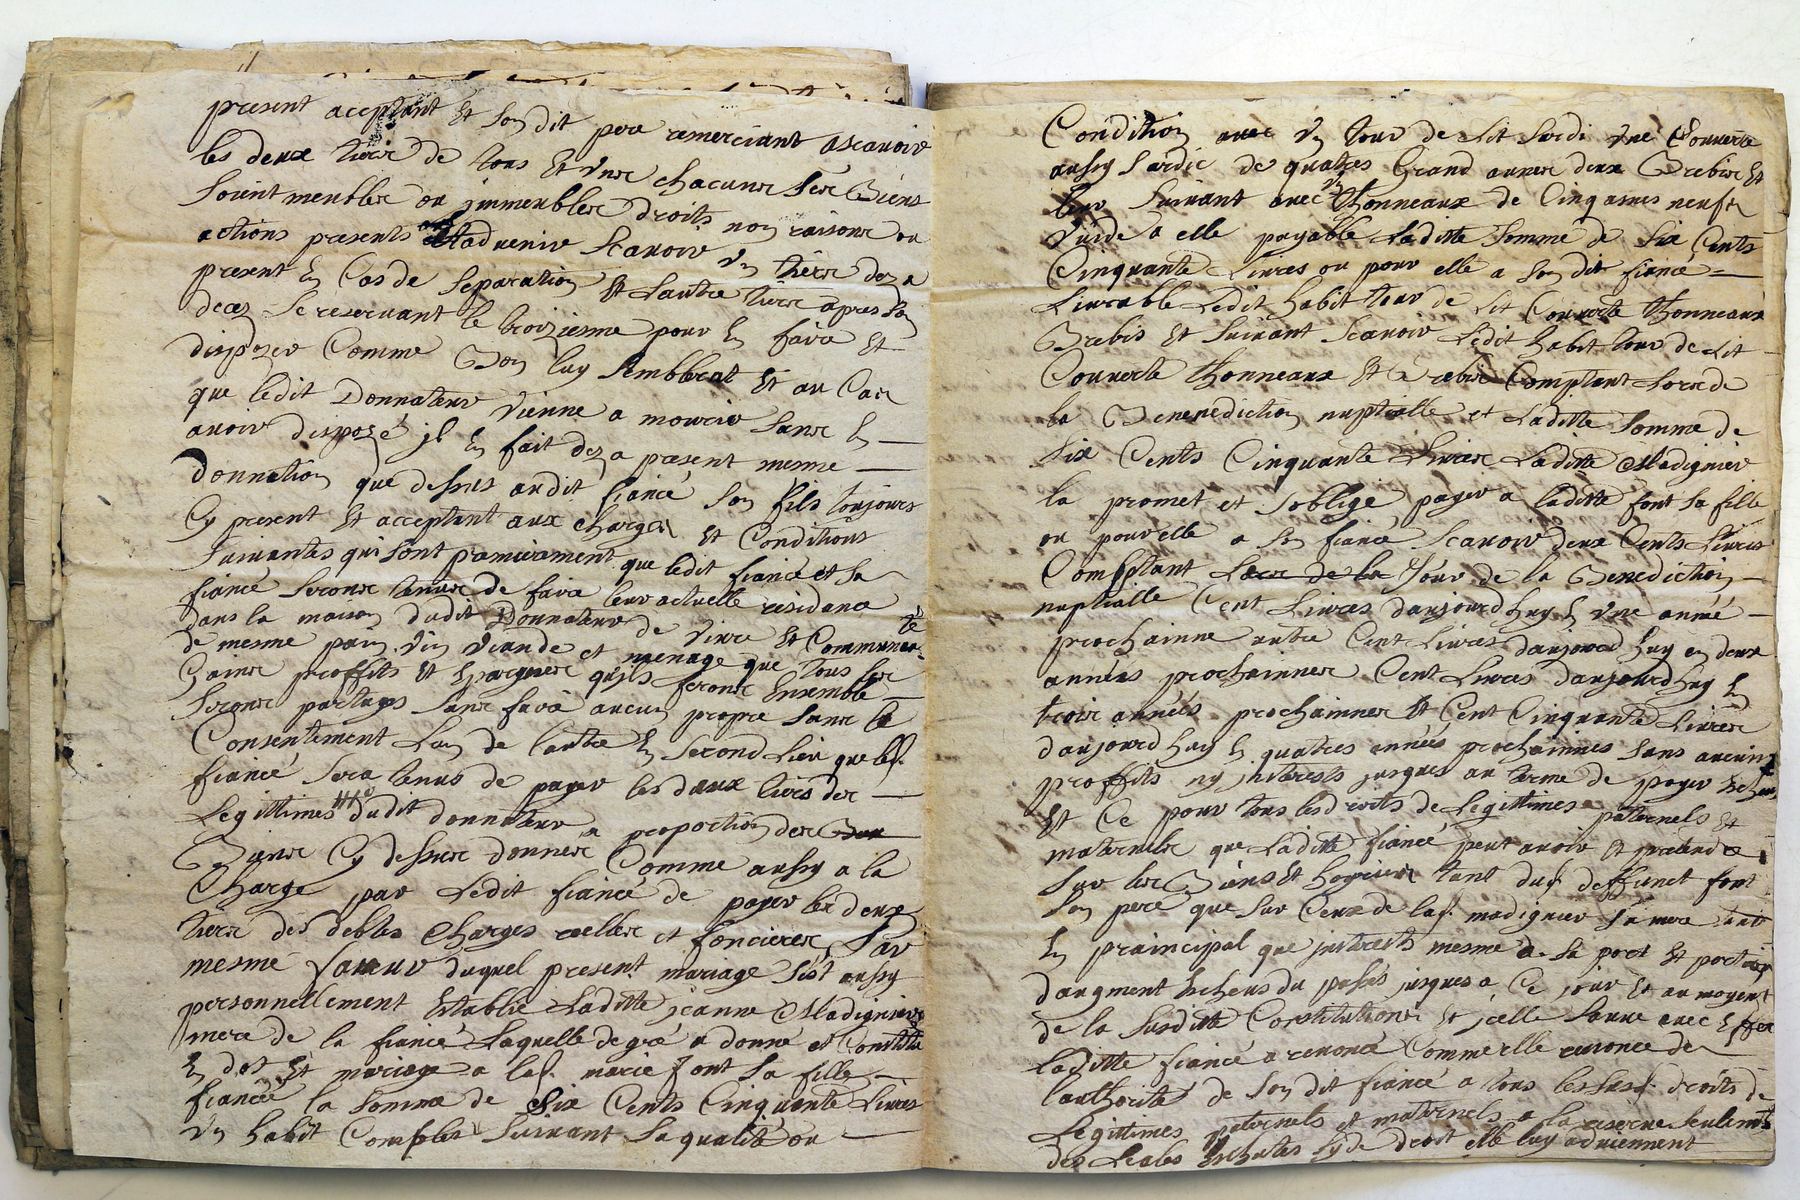 present aceptant Et Son dit pere remerciant ascavoir
les deux tiers de tous Et Uns chacuns Ses Biens
Soient meubles ou jmmeubles droits nom raisons ou
actions presents et advenir Scavoir Un tiers dez a
present En Cas de Separation Et Lautre tiers apres Son
decez Se reservant le troiziesme pour En faire Et
disposer Comme Bon luy Semblerat Et au Cas
que ledit Donnateur vienne a mourir Sans En
avoir disposé jl En fait dez a pnt mesme
donnation que dessus audit fiancé Son fils toujours
Cy present Et acceptant aux charges Et Conditions
Suivantes qui Sont premierement que ledit fiancé et Sa
fiancé Seront tenus de faire leur actuelle residance
dans la maison dudit Donnateur de vivre Et Communauté
de mesme pain vin viande et menage que tous les
Gains proffits Et Epargnes qu'jls feront Ensemble
Seront partages Sans faire aucun propre Sans le
Consentement Lun de lautre En Second Lieu que led.
fiancé Sera tenus de payer les deux tiers des
Legittimes dudit donnateur a proportion des
Biens Cy dessus donnes Comme aussy a la
Charge par Ledit fiancé de payer les deux
tiers des debtes Charges reelles et foncieres, Par
mesme faveur duquel present mariage S'est aussy
personnellement Establie Laditte jeanne Madignier
mere de la fiancé Laquelle de gré a donné et Constitué
En dot Et mariage a lad. marie font Sa fille
fiancée la Somme de Six Cents Cinquante Livres
Un habit Complet Suivant Sa qualité ou
Condition avec Un tour de Lit Sardi Une Couverte
aussy Sardie de quatres Grand aunes deux Brebis Et
leur Suivant avec Un thonneaux de Cinq asnes neuf Et
vuide a elle payable Laditte Somme de Six Cents
Cinquante Livres ou pour elle a Son dit fiancé
Livrable Ledit habit tour de Lit Couverte thonneaux
Brebis Et Suivant Scavoir Ledit habit tour de Lit
Couverte thonneaux Et Brebis Comptant Lors de
la Benenediction nuptialle et Laditte Somme de
Six Cents Cinquante Livres Laditte Madignier
la promet et S'oblige payer a laditte font Sa fille
ou pour elle a Son fiancé Scavoir deux Cents Livres
Comptant Lors de la Jour de la Benediction
nuptialle Cent Livres daujourdhuy En Une année
prochainne autre Cent Livres daujourd huy en deux
années prochainnes Cent Livres daujourdhuy En
trois années prochainnes Et Cent Cinquante Livres
daujourdhuy En quatres années prochainnes Sans aucuns
proffits ny jnterests jusques au terme de payer Echeus
Et Ce pour tous les droits de Legittimes paternels Et
maternels que Laditte fiancé peut avoir Et pretendre
Sur les Biens Et hoyries tant dud. deffunct font
Son pere que Sur Ceux de lad. madignier Sa mere tant
En prainncipal que jnterests mesme a Sa part Et portion
daugment Echeus du passés jusques a Ce jour Et au moyent
de la Susditte Constitution Et jcelle Sauve avec Effet
laditte fiancé a renoncé Comme elle renonce de
lauthorité de Son dit fiancé a tous les Sus d. droits de
Legittimes paternels et maternels a la reserve Seulemt
des Leales Escheutes Sy de droit elle luy adviennent